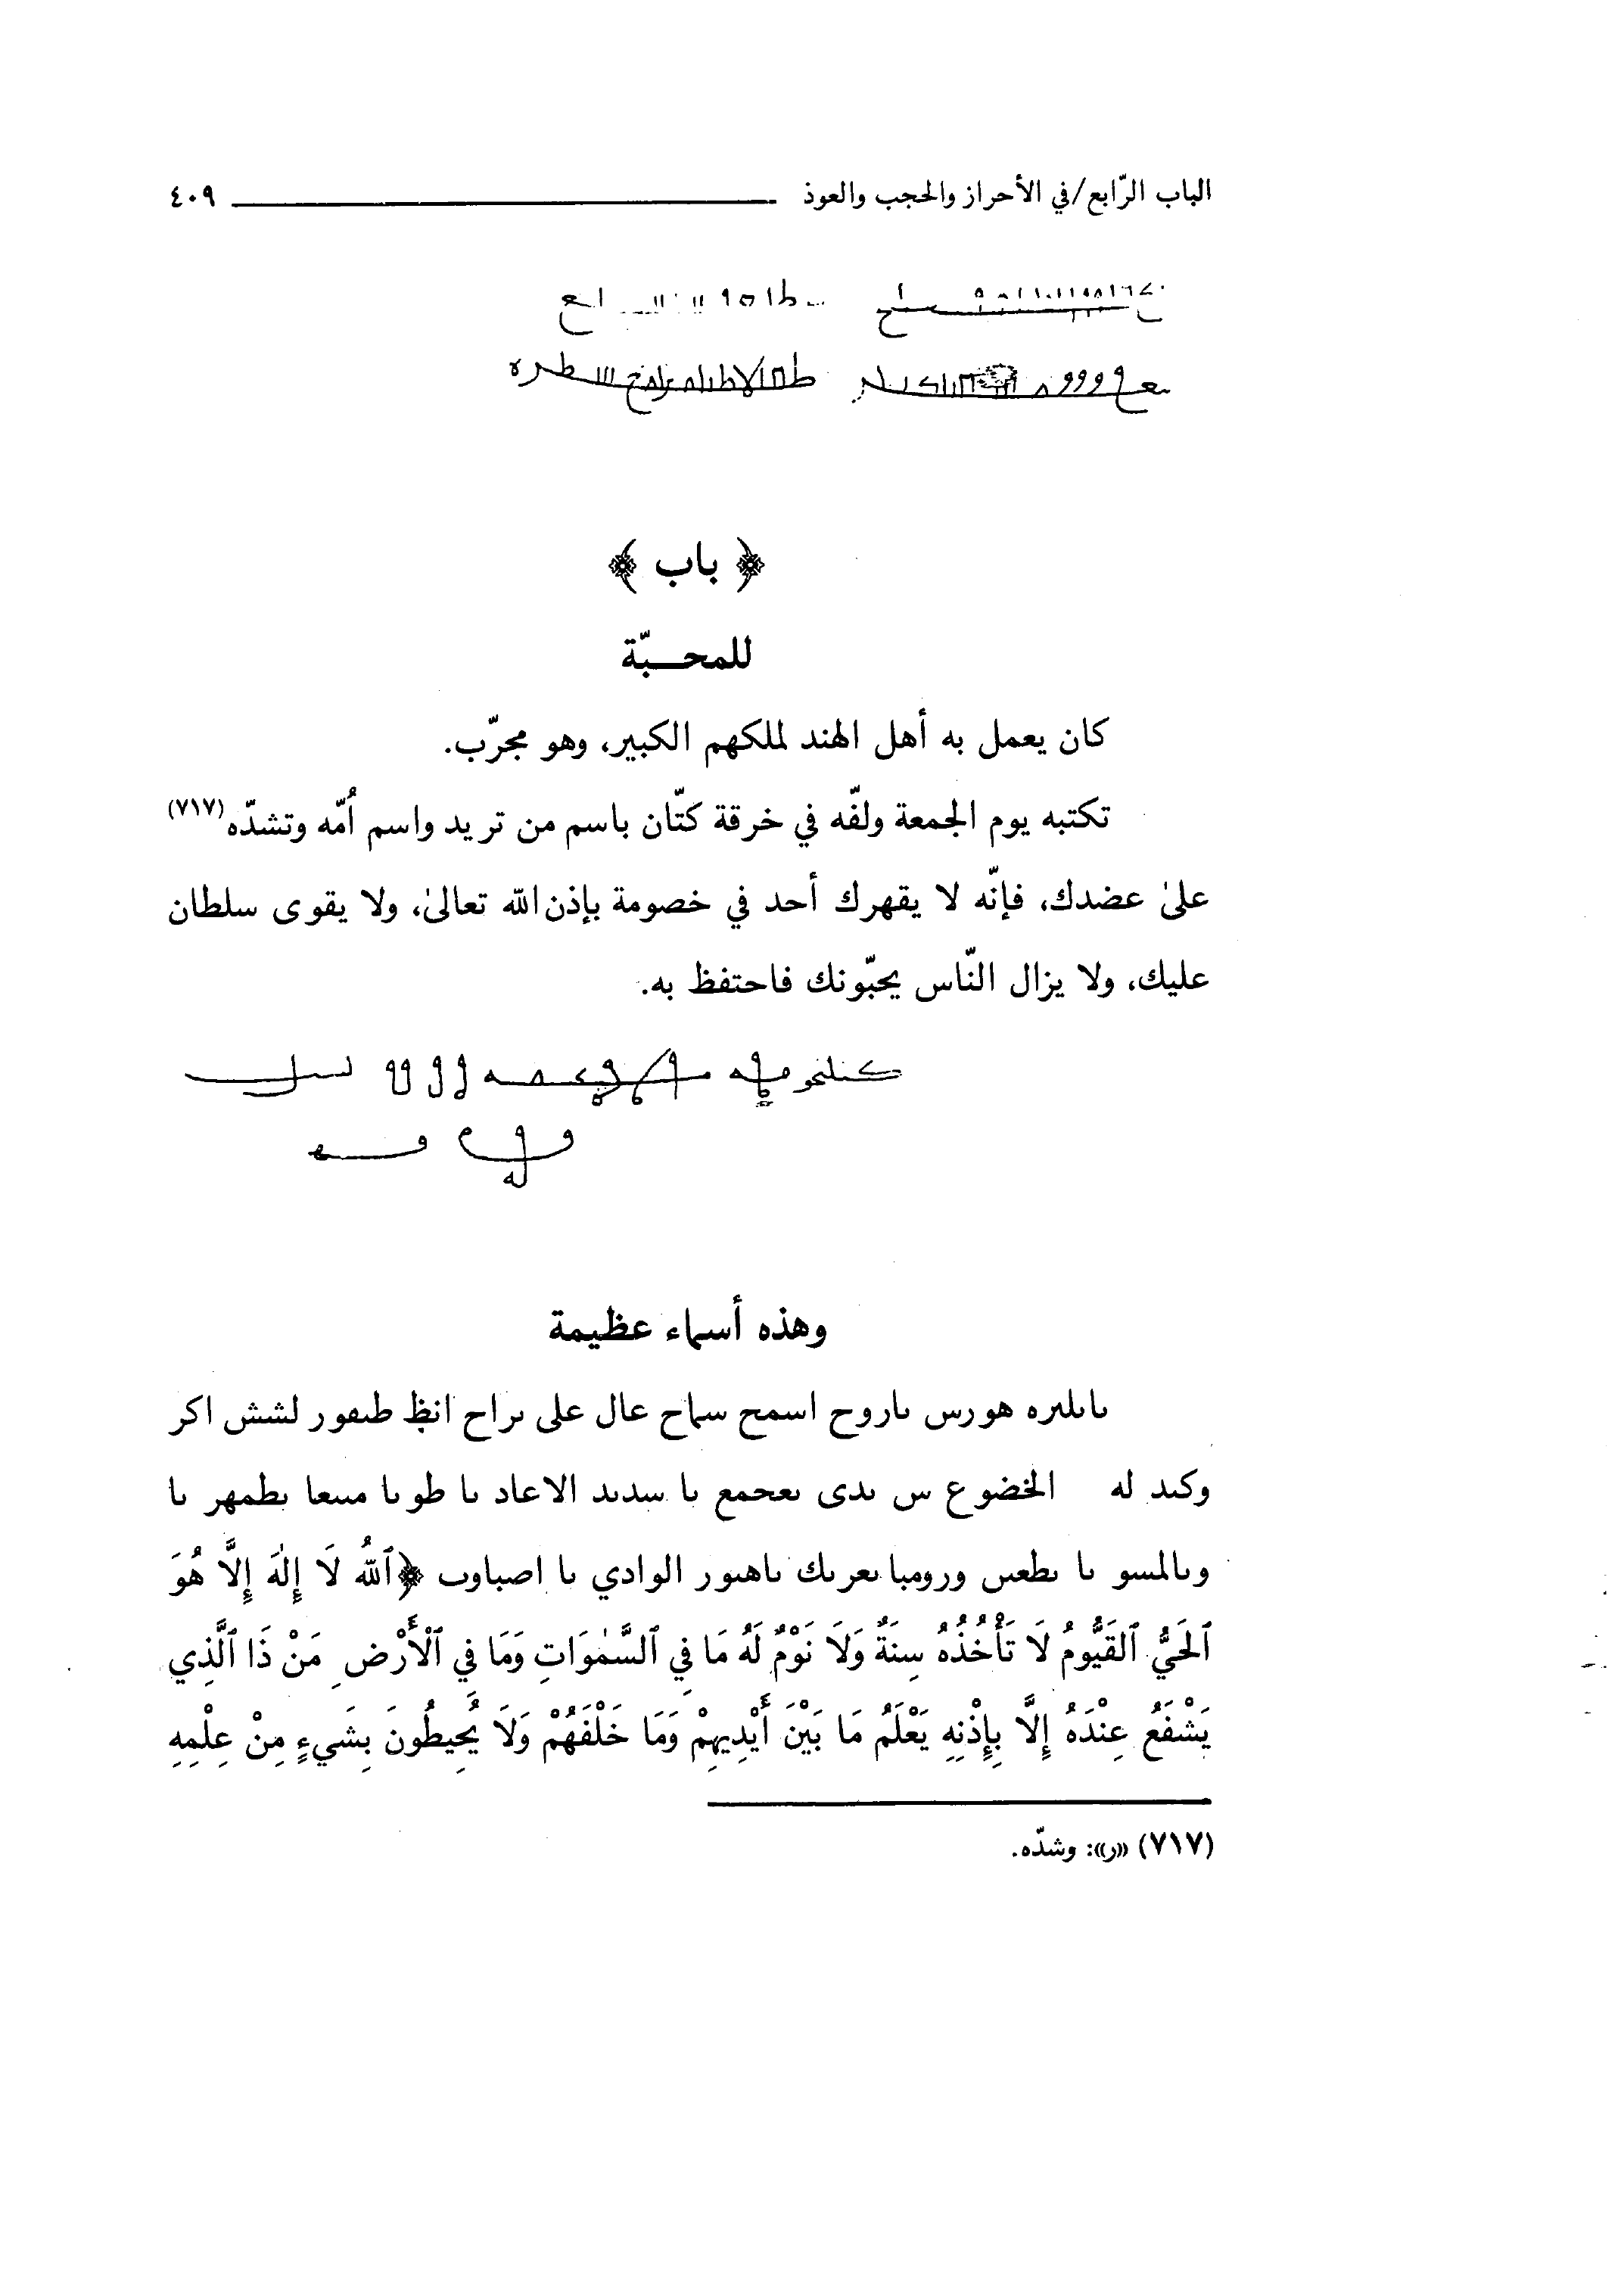 الباب الرّابع/في الأحراز والحجب والعوذ ٤٠٩
﴿ باب ﴾
للمحبّة
كان يعمل به أهل الهند لملكهم الكبير، وهو مجرّب.
تكتبه يوم الجمعة ولفّه في خرقة كتّان باسم من تريد واسم أُمّه وتشدّه(٧١٧)
علىٰ عضدك، فإنّه لا يقهرك أحد في خصومة بإذن الله تعالىٰ، ولا يقوى سلطان
عليك، ولا يزال النّاس يحبّونك فاحتفظ به.
وهذه أسماء عظيمة
هورس ٮاروح اسمح سماح عال على ٮراح لشش اكر
وكٮد له الخضوع س ٮدى ٮعحمع ٮا سدٮد الاعاد ٮا طوٮا ٮطمهر ٮا
وٮالمسو ٮا ٮطعس الوادي ٮا اصٮاوٮ ﴿ٱللهُ لَا إِلٰهَ إِلَّا هُوَ
ٱلحَيُّ ٱلقَيُّومُ لَا تَأْخُذُهُ سِنَةٌ وَلَا نَوْمٌ لَهُ مَا فِي ٱلسَّمٰوَاتِ وَمَا فِي ٱلْأَرْضِ مَنْ ذَا ٱلَّذِي
يَشْفَعُ عِنْدَهُ إِلَّا بِإِذْنِهِ يَعْلَمُ مَا بَيْنَ أَيْدِيهِمْ وَمَا خَلْفَهُمْ وَلَا يُحِيطُونَ بِشَيءٍ مِنْ عِلْمِهِ
(٧١٧) «ر»: وشدّه.